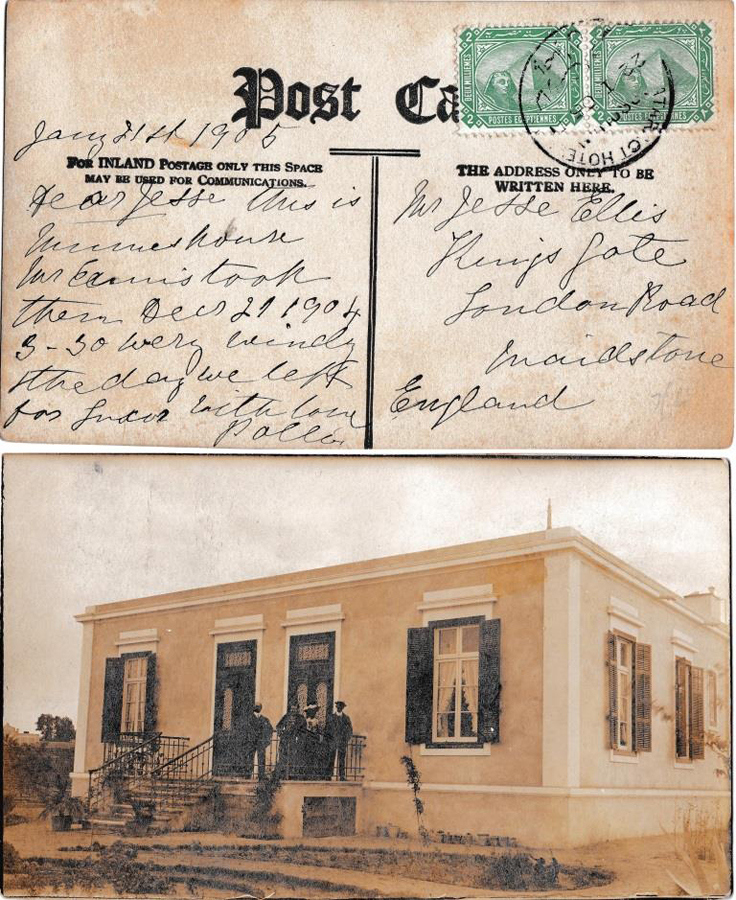 Post Ca
Jany 21st 1905
FOR INLAND POSTAGE ONLY THIS SPACE
MAY BE USED FOR COMMUNICATIONS.
THE ADDRESS ONLY TO BE
WRITTEN HERE.
Dear Jesse this is
house
Mr took
them Decr 21 1904
3-30 very windy
the day we left
for Luxor with love
Mr Jesse Ellis
Kings Gate
London Road
Maidstone
England
2 2
DEUX MILLIEMES
POSTES EGYPTIENNES
2 2
DEUX MILLIEMES
POSTES EGYPTIENNES
CT HOTE